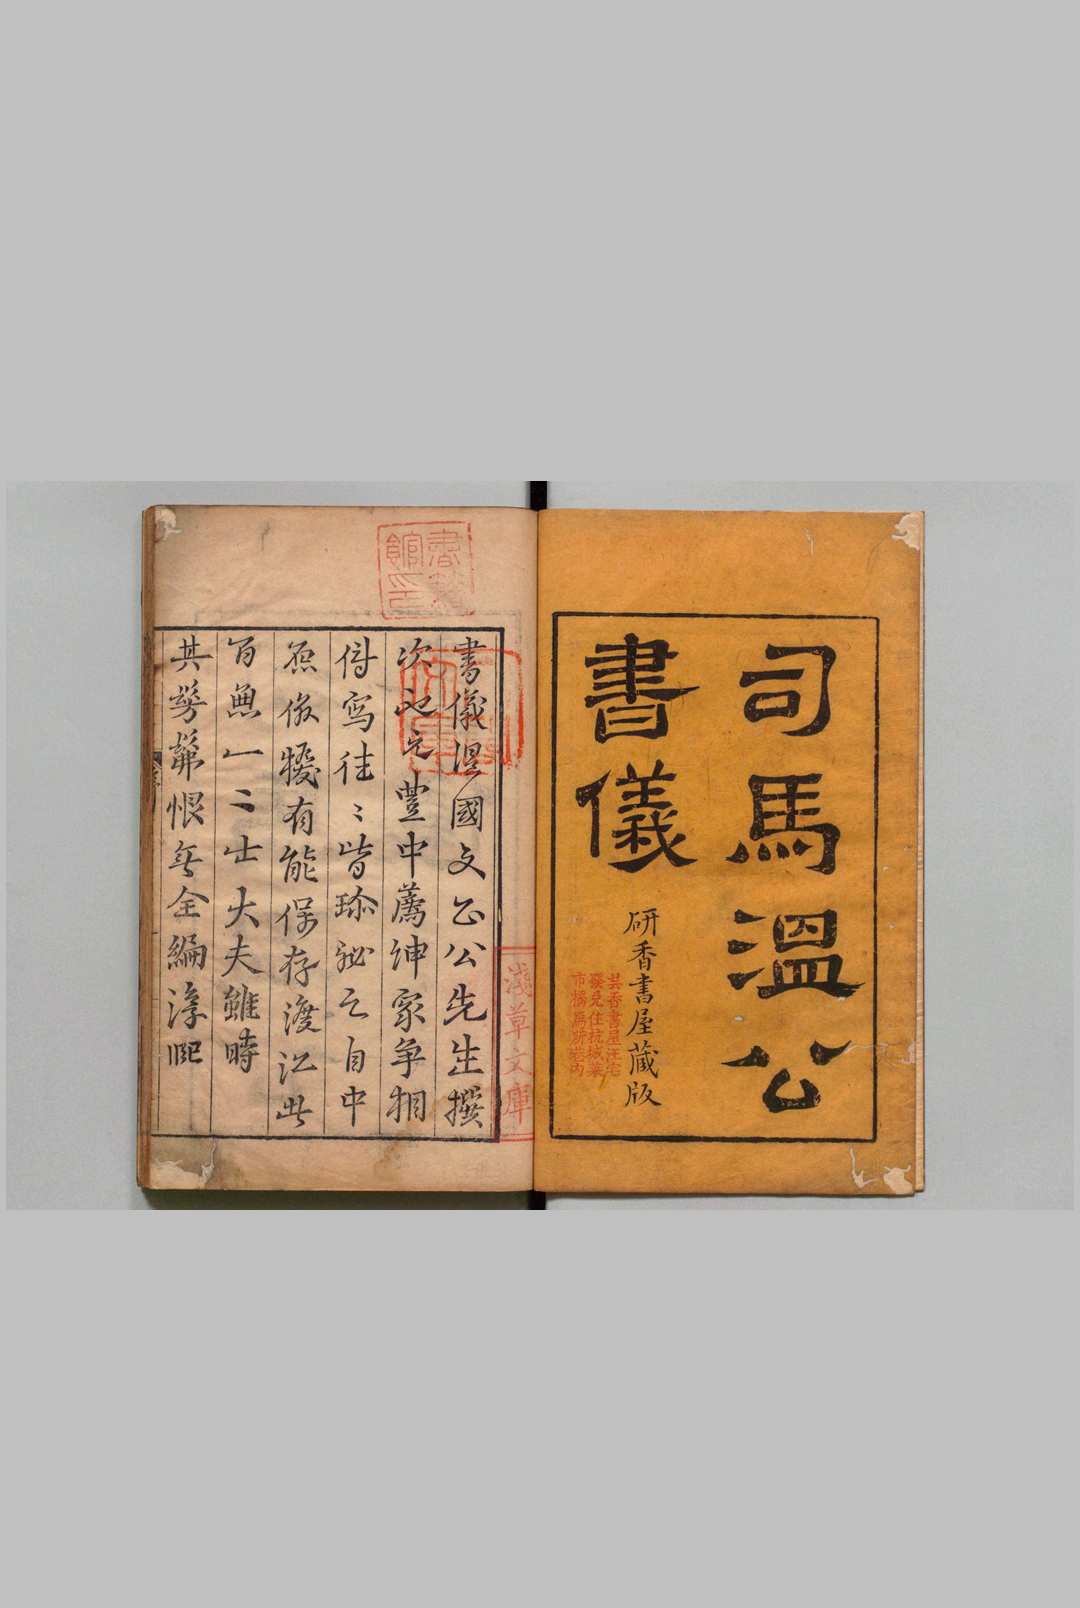 司馬溫公
書儀
研香書屋藏版
香書屋汪宅
發兌住杭城菜
市橋馬所巷內
書籍館印
淺草文庫
書儀溫國文正公先生撰
次也元豐中薦紳家爭相
傳寫往〻皆珍祕之自中
原俶擾有能保存渡江此
百無一二士大夫雖時
其髣髴恨無全編淳熙